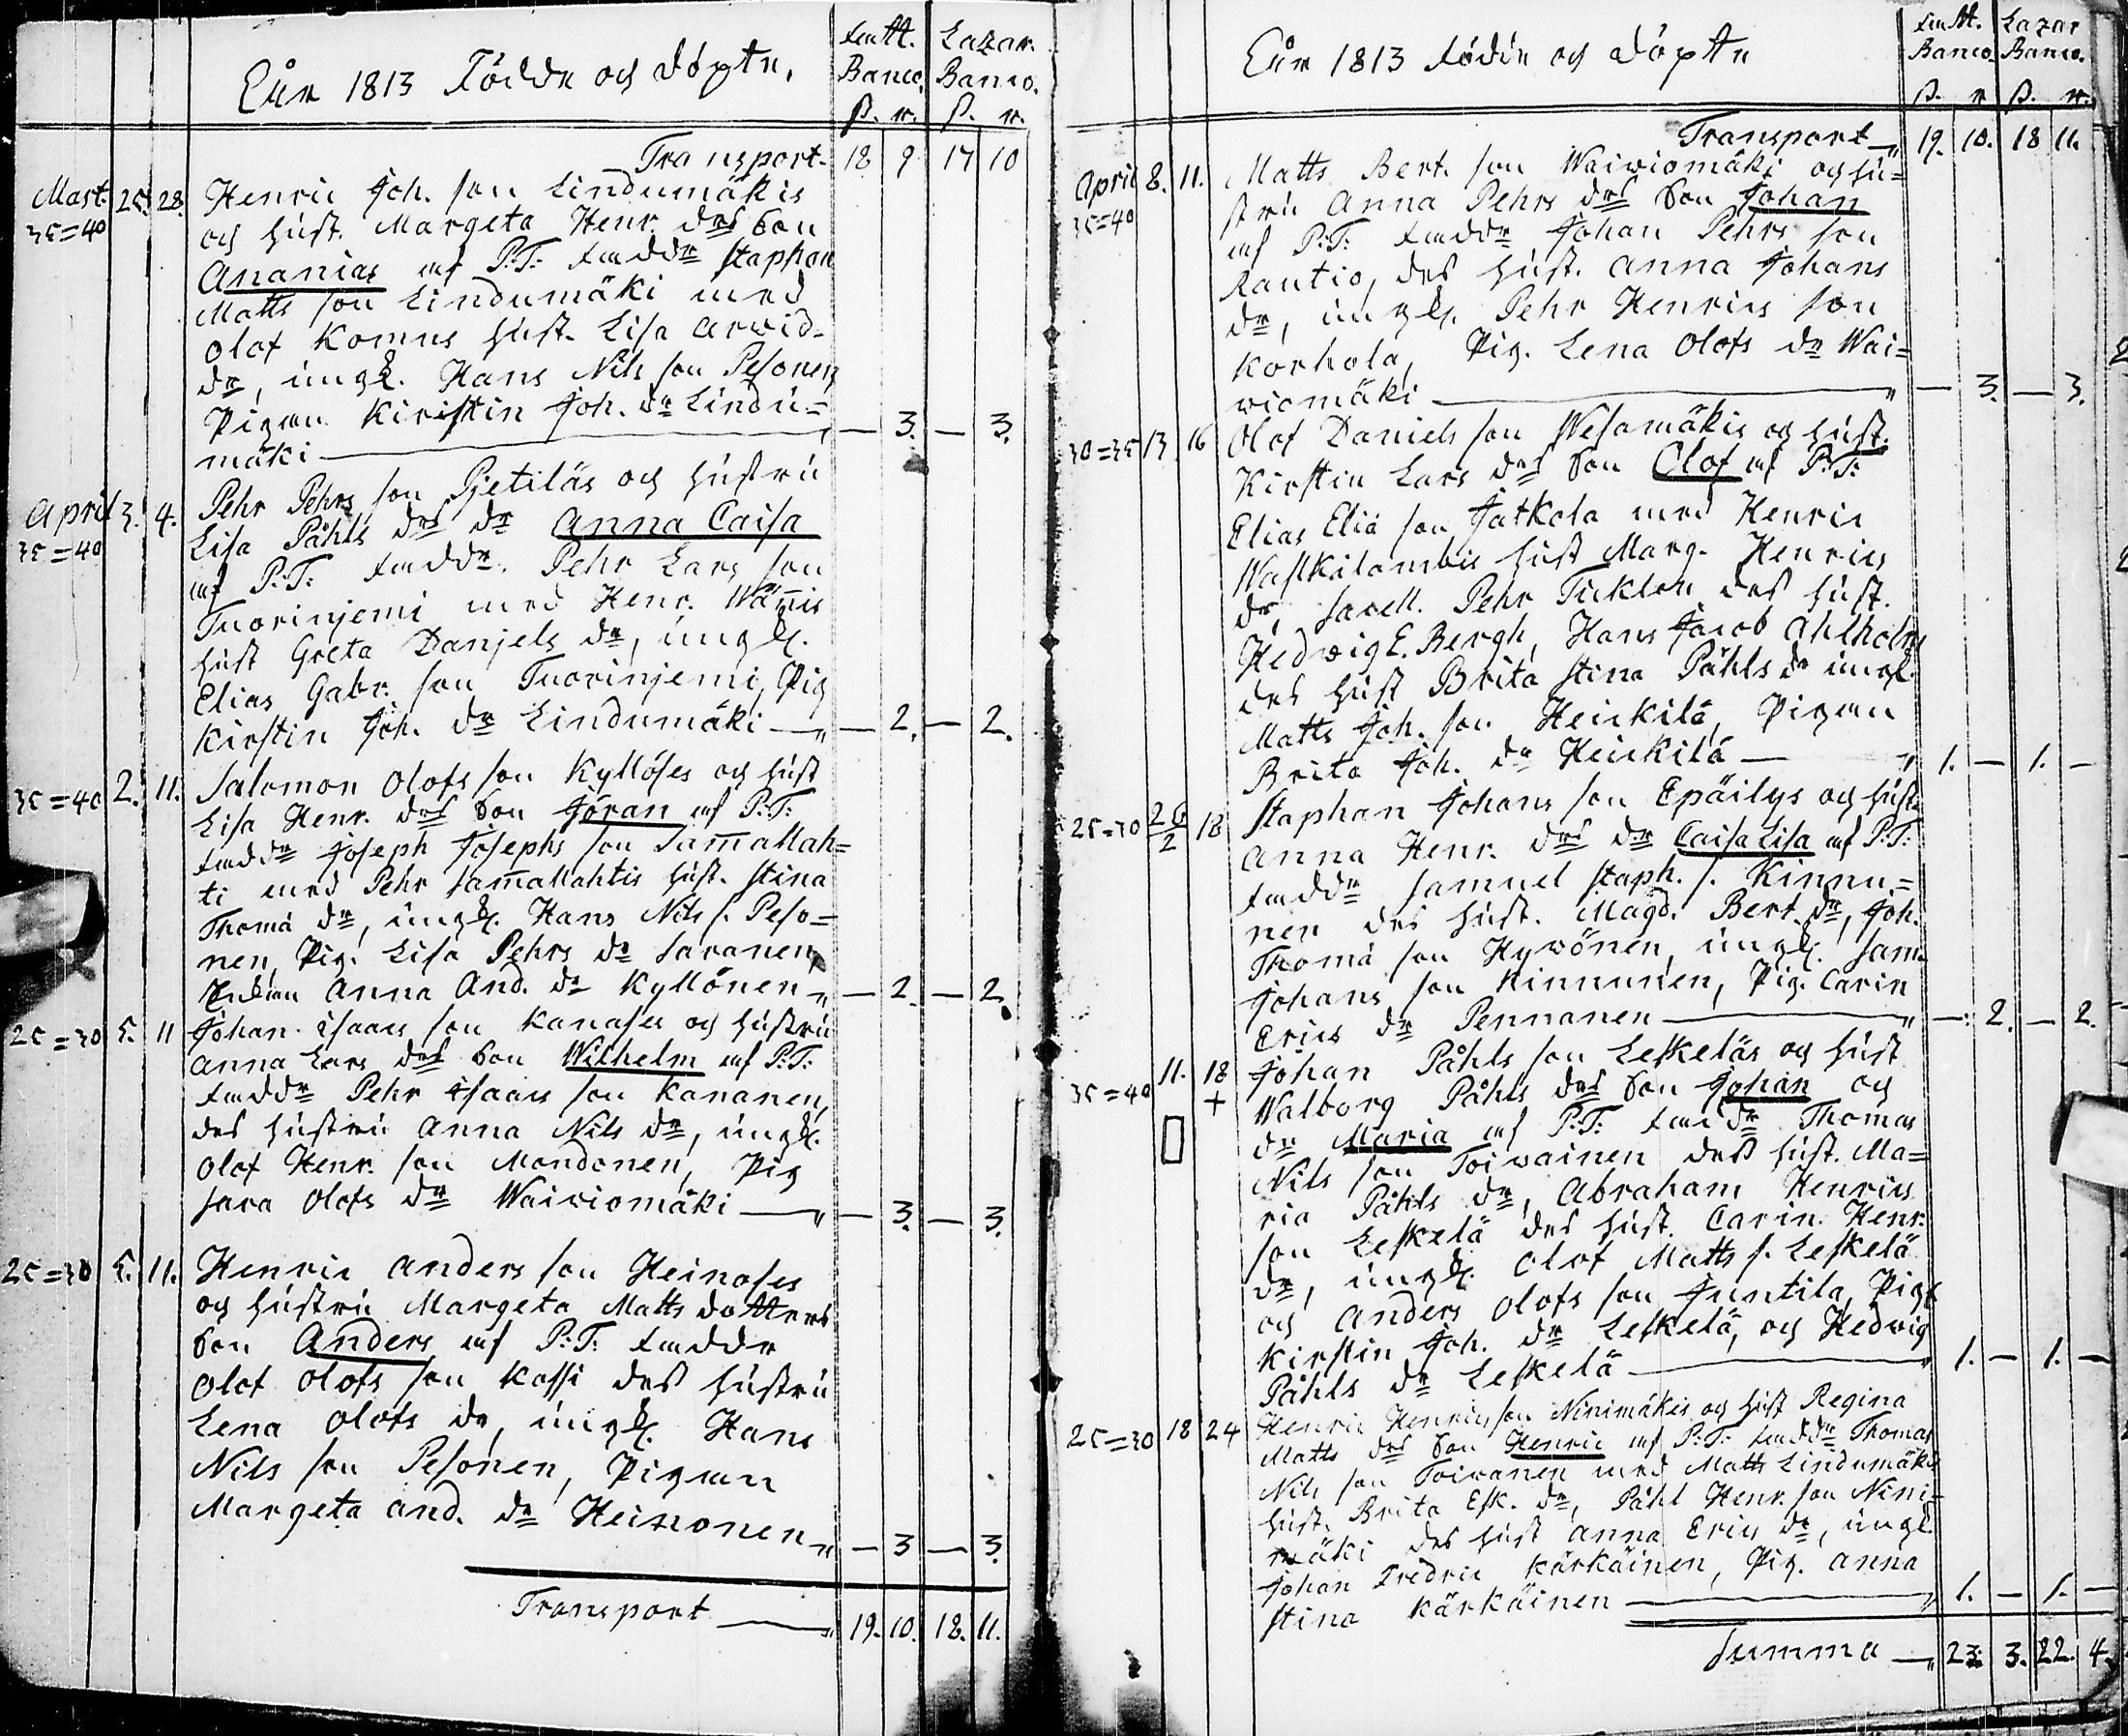 Åhr 1813 Födde och döpte.
Fatt. Lazar.
Banco. Banco.
ß. r. ß. r.
Transport 18 9 17 10
Mart. 25. 28. Henric Joh. son Lindumäkis
35=40 och hust. Margeta Henr. drs Son
Ananias af P:T: Faddr Staphan
Matts son Lindumäki med
Olof Komus hust. Lisa Arwid-
dr, ungk. Hans Nils son Pesonen
Pigan Kirstin Joh. dr Lindu=
mäki — 3. — 3.
April 3. 4. Pehr Pehrs son Pjetiläs och hustru
35=40 Lisa Påhls drs dr Anna Caisa
af P:T: Faddr. Pehr Lars son
Tuorinjemi med Henr. Wännis
hust Greta Danjels dr, ungk.
Elias Gabr. son Tuorinjemi, Pig
Kirstin Joh. dr Lindumäki — 2. — 2.
35=40 2. 11. Salomon Olofs son Kyllöses och hust
Lisa Henr. drs Son Jöran af P:T:
Faddr Joseph Josephs son Jamallah=
ti med Pehr Jamallahtis hust. Stina
Thomä dr, ungk. Hans Nils s. Peso=
nen, Pig. Lisa Pehrs dr Saranen,
Enkan Anna And. dr Kyllönen — 2. — 2.
25=30 5. 11 Johan Isaacs son Kanases och hustru
Anna Lars drs Son Wilhelm af P:T:
Faddr Pehr Isaacs son Kananen,
des hustru Anna Nils dr, ungk.
Olof Henr. son Mondonen, Pig
Sara Olofs dr Waiwiomäki — 3. — 3.
25=30 5. 11. Henric Anders son Heinoses
och hustru Margeta Matts dotters
Son Anders af P:T: Faddr
Olof Olofs son Kassi des hustru
Lena Olofs dr, ungk. Hans
Nils son Pesonen, Pigan
Margeta And. dr Heinonen — 3 — 3.
Transport 19. 10. 18. 11.
Åhr 1813 födde och döpte
Fatt. Lazar
Banco. Banco.
ß. r ß. r.
Transport 19. 10. 18 11.
April 8. 11. Matts Bert. son Waiwiomäki och hu=
35=40 stru Anna Pehrs drs Son Johan
af P:T: Faddr Johan Pehrs son
Rautio, des hust. Anna Johans
dr, ungk. Pehr Henrics son
Korhola, Pig. Lena Olofs dr Wai=
wiomäki — 3. — 3.
30=35 13 16 Olof Daniels son Wesamäkis och hust.
Kirstin Lars drs Son Olof af P:T:
Elias Eliä son Jatkola med Henric
Waskilambis hust Marg. Henrics
dr, Sacell. Pehr Ticklén des hust.
Hedwig E. Bergh, Hans Jacob Ahlholm
des hust Brita Stina Påhls dr ungk.
Matts Joh. son Heickilä, Pigan
Brita Joh. dr Heickilä 1. — 1. —
25=30 26/2 18 Staphan Johans son Epäilys och hust.
Anna Henr. drs dr Caisa Lisa af P:T:
Faddr Samuel Staph. s. Kinnu=
nen des hust. Magd. Bert. dr, Joh.
Thomä son Hywönen, ungk. Sam.
Johans son Kinnunen, Pig. Carin
Erics dr Pennanen — 2. — 2.
35=40 11. 18 Johan Påhls son Leskeläs och hust
+ Walborg Påhls drs Son Johan och
dr Maria af P:T: Faddr Thomas
Nils son Toiwainen des hust. Ma=
ria Påhls dr, Abraham Henrics
son Leskelä des hust. Carin Henr.
dr, ungk. Olof Matts s. Leskelä
och Anders Olofs son Juntila, Pig
Kirstin Joh. dr Leskelä, och Hedwig
Påhls dr Leskelä 1. — 1. —
25=30 18 24 Henric Henrics son Ninimäkis och hust Regina
Matts drs Son Henric af P:T: Faddr Thomas
Nils son Toiwanen med Matts Lindumäkis
hust. Brita Esk. dr, Påhl Henr. son Nini=
mäki des hust Anna Erics dr, ungk.
Johan Fredric Kärkäinen, Pig. Anna
Stina Kärkäinen 1. — 1. —
Summa 23. 3. 22. 4.